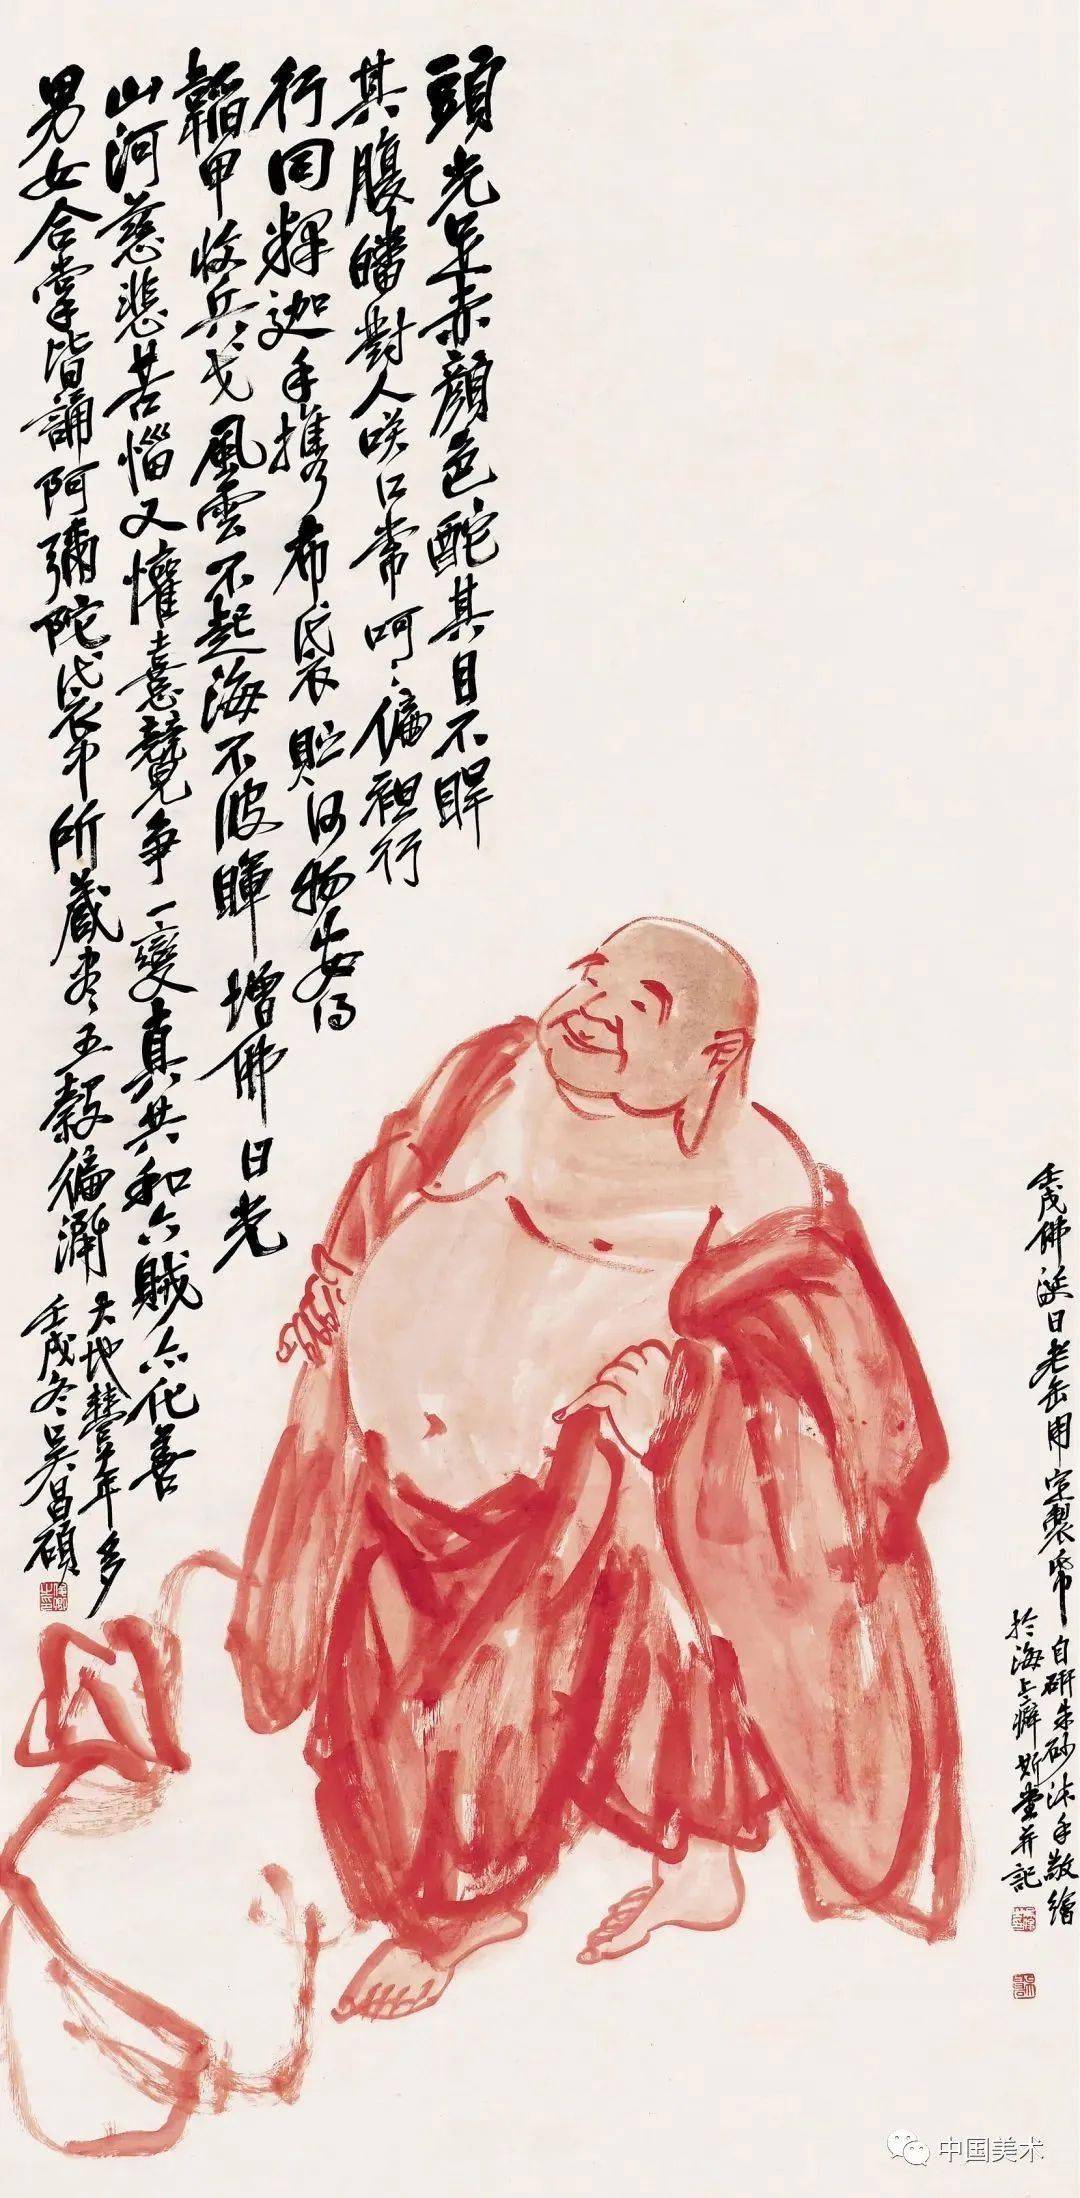 頭光足赤顔色酡其目不睅
其腹皤對人咲口常呵〻偏袒行
行同釋迦手攜布袋貯何物安得
韜甲收兵戈風雲不起海不波暉增佛日光
山河慈悲苦惱又懽喜競爭一變真共和六賊亦化善
男女合掌皆誦阿彌陀袋中所藏盡五穀徧
大地豐年多
壬戌冬吳昌碩
壬戌佛誕日老缶用定製帋自研朱砂沐手敬繪
於海上癖斯堂并記
中国美术